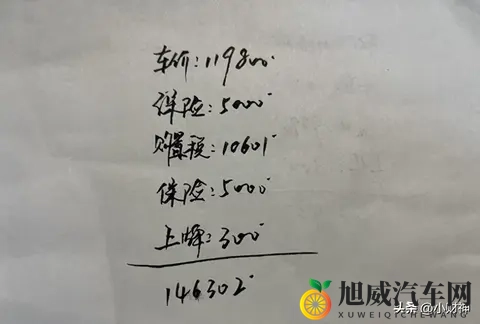 车价：119800
保险：5000
购置税：10601
保险：5000
上牌：300
146302
旭威汽车网
XUWEIQICHEWANG
头条@小财神